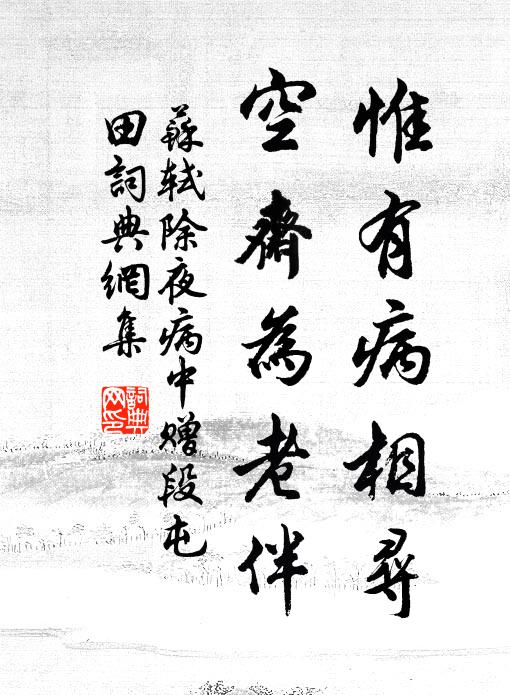 惟有病相尋
空齋為老伴
蘇軾除夜病中贈段屯
田詞典網集
詞典
网印